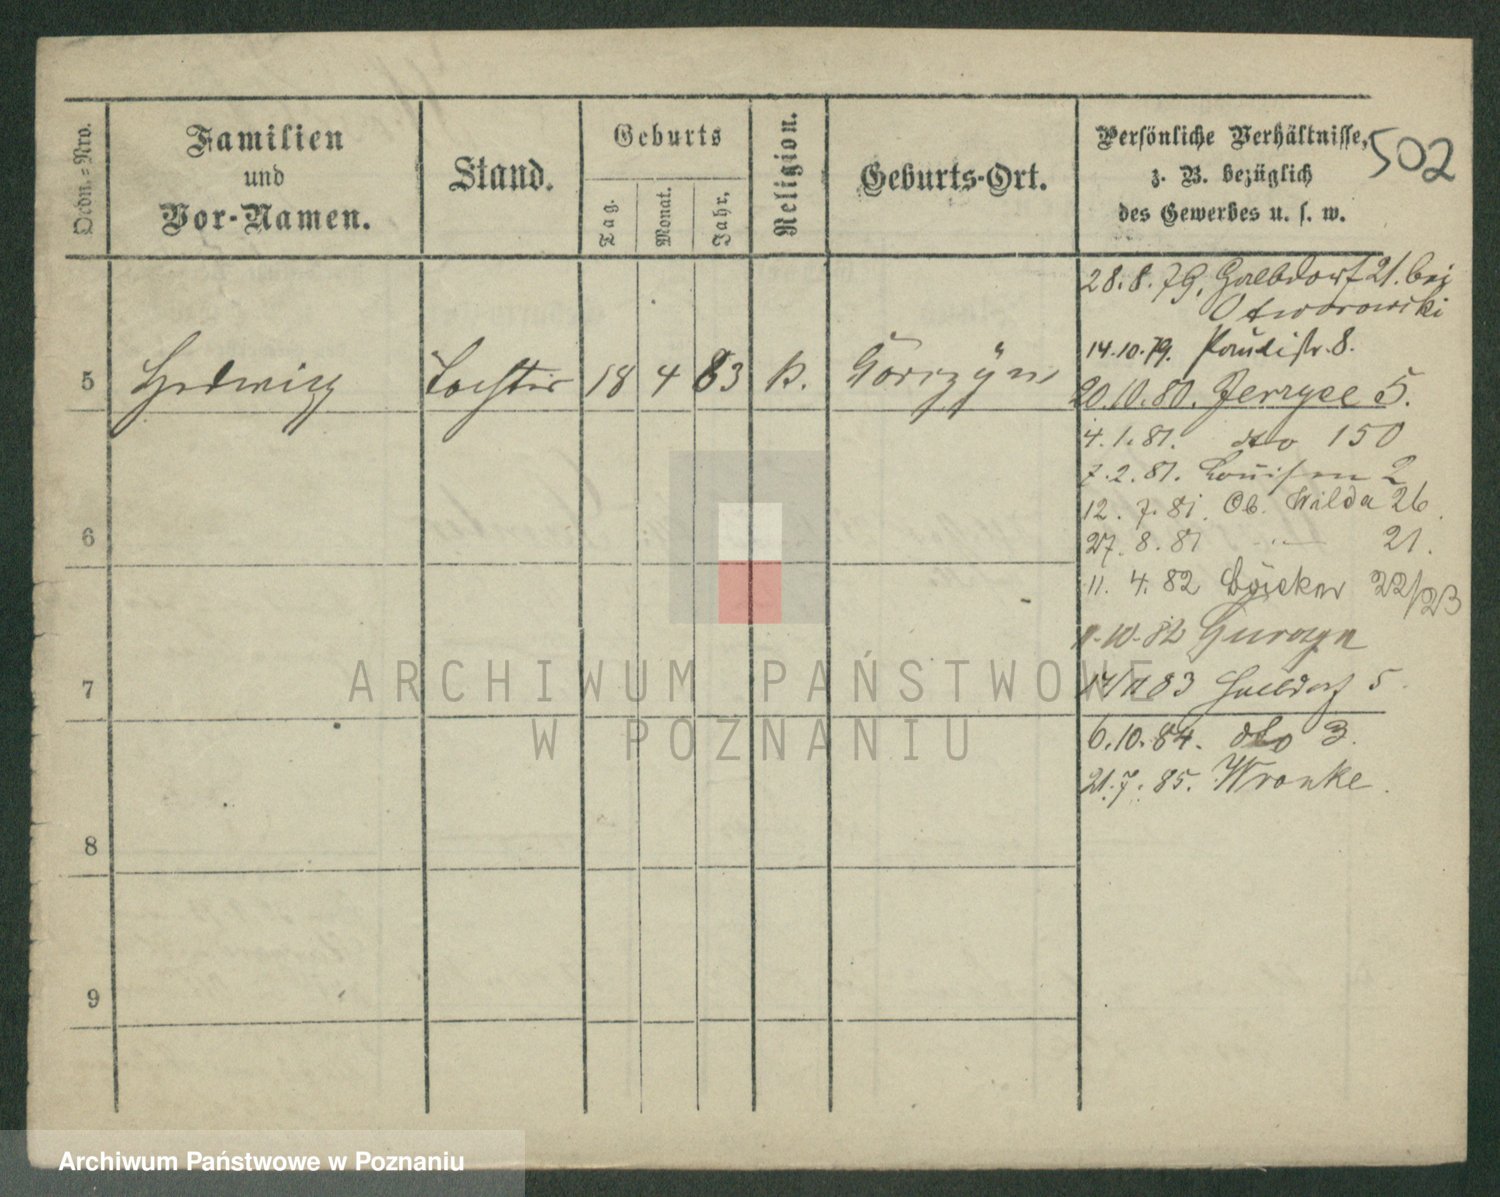 Ordn.-Nro.
Familien
und
Vor-Namen.
Stand.
Geburts
Tag.
Monat.
Jahr.
Religion.
Geburts-Ort.
Persönliche Verhältnisse,
z. B. bezüglich
des Gewerbes u. s. w.
502
28.8.79. 21. bei
Otworowski
14.10.79. 8.
5 Hedwig Tochter 18 4 83 k. Görczyn
20.10.80. Jerzyce 5.
4.1.81. dto 150
7.2.81. Louisen 2
12.7.81. Ob. Wilda 26.
6
27.8.81 " 21.
11.4.82 Bäcker 22/23
11.10.82 Gurczyn
7
83 5.
6.10.84. dto 3.
21.7.85. Wronke.
8
9
ARCHIWUM PAŃSTWOWE
W POZNANIU
Archiwum Państwowe w Poznaniu